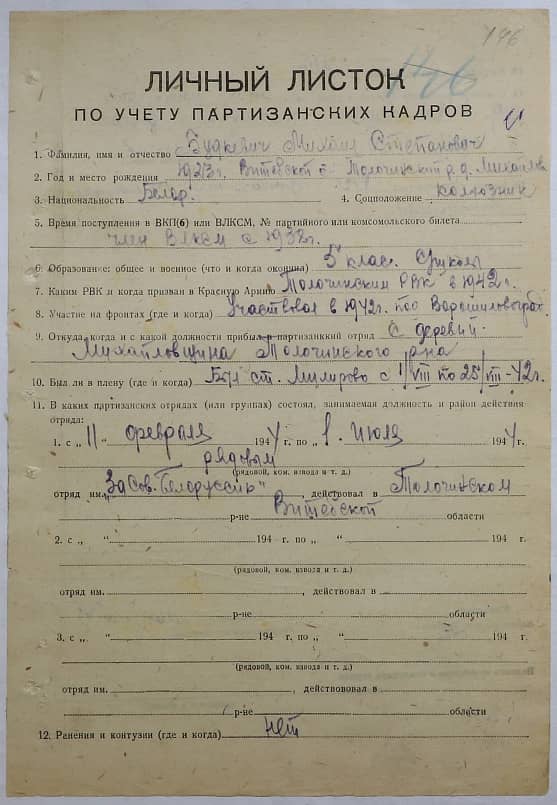 146
146
ЛИЧНЫЙ ЛИСТОК
ПО УЧЕТУ ПАРТИЗАНСКИХ КАДРОВ
1. Фамилия, имя и отчество Будкевич Михаил Степанович
2. Год и место рождения 1923 г. Витебской о. Толочинский р. д. Михайлов
3. Национальность Белор. 4. Соцположение колхозник
5. Время поступления в ВКП(б) или ВЛКСМ, № партийного или комсомольского билета
член ВЛКСМ с 1938г.
6. Образование: общее и военное (что и когда окончил) 5 клас. Школы
7. Каким РВК и когда призван в Красную Армию Толочинским РВК в 1942 г.
8. Участие на фронтах (где и когда) Участвовал в 1942 г. под Ворошиловград
9. Откуда, когда и с какой должности прибыл в партизанский отряд с деревий
Михайловщина Толочинского р-на
10. Был ли в плену (где и когда) Был ст. Милирово с 1/VIII по 25/VIII-42г.
11. В каких партизанских отрядах (или группах) состоял, занимаемая должность и район действия
отряда:
1. с „ 11 “ февраля 1944 г. по „ 1 “ июля 1944 г.
рядовым
(рядовой, ком. взвода и т. д.)
отряд им. "За Сов. Белоруссию", действовал в Толочинском
р-не Витебской области
2. с „ “ 194 г. по „ “ 194 г.
(рядовой, ком. взвода и т. д.)
отряд им. , действовал в
р-не области
3. с „ “ 194 г. по „ “ 194 г.
(рядовой, ком. взвода и т. д.)
отряд им. , действововал в
р-не области
12. Ранения и контузии (где и когда) нет